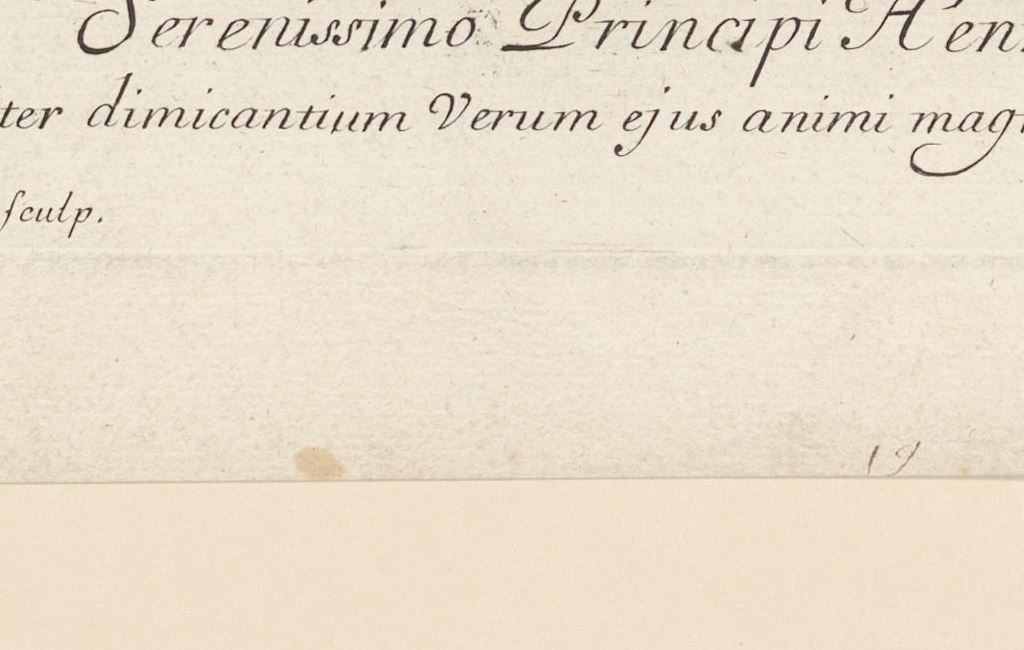 Serenissimo Principi Hen
ter dimicantium Verum ejus animi mag
sculp.
19